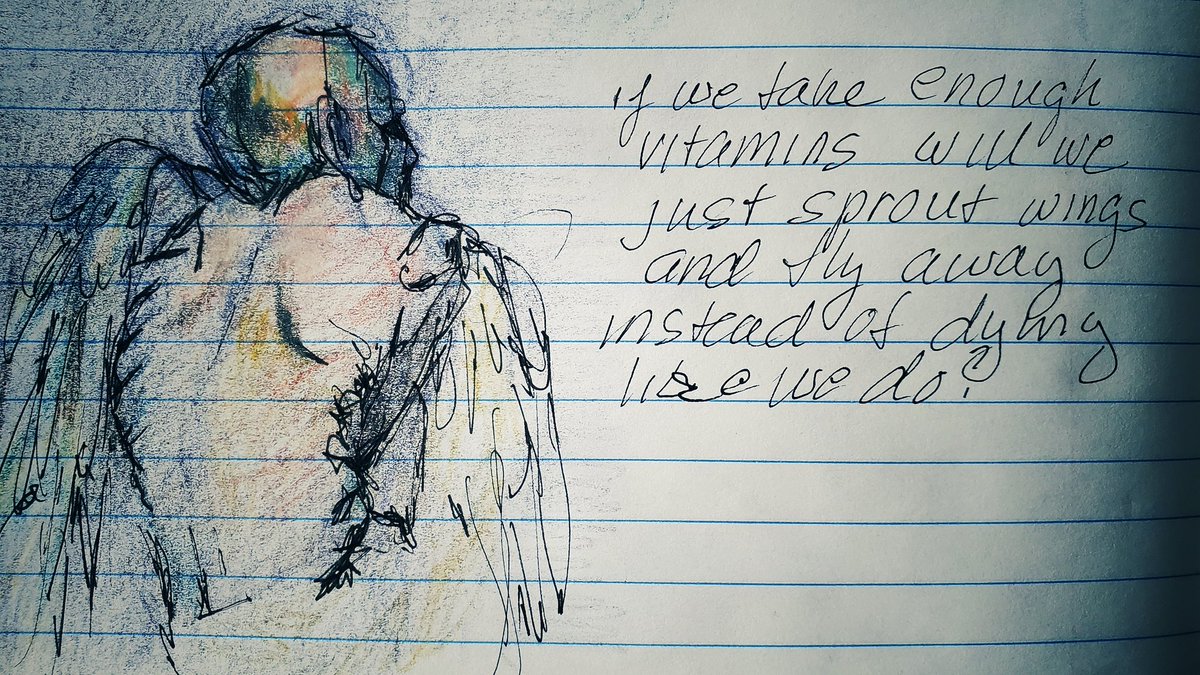 if we take enough
vitamins will we
just sprout wings
and fly away
instead of dying
like we do?